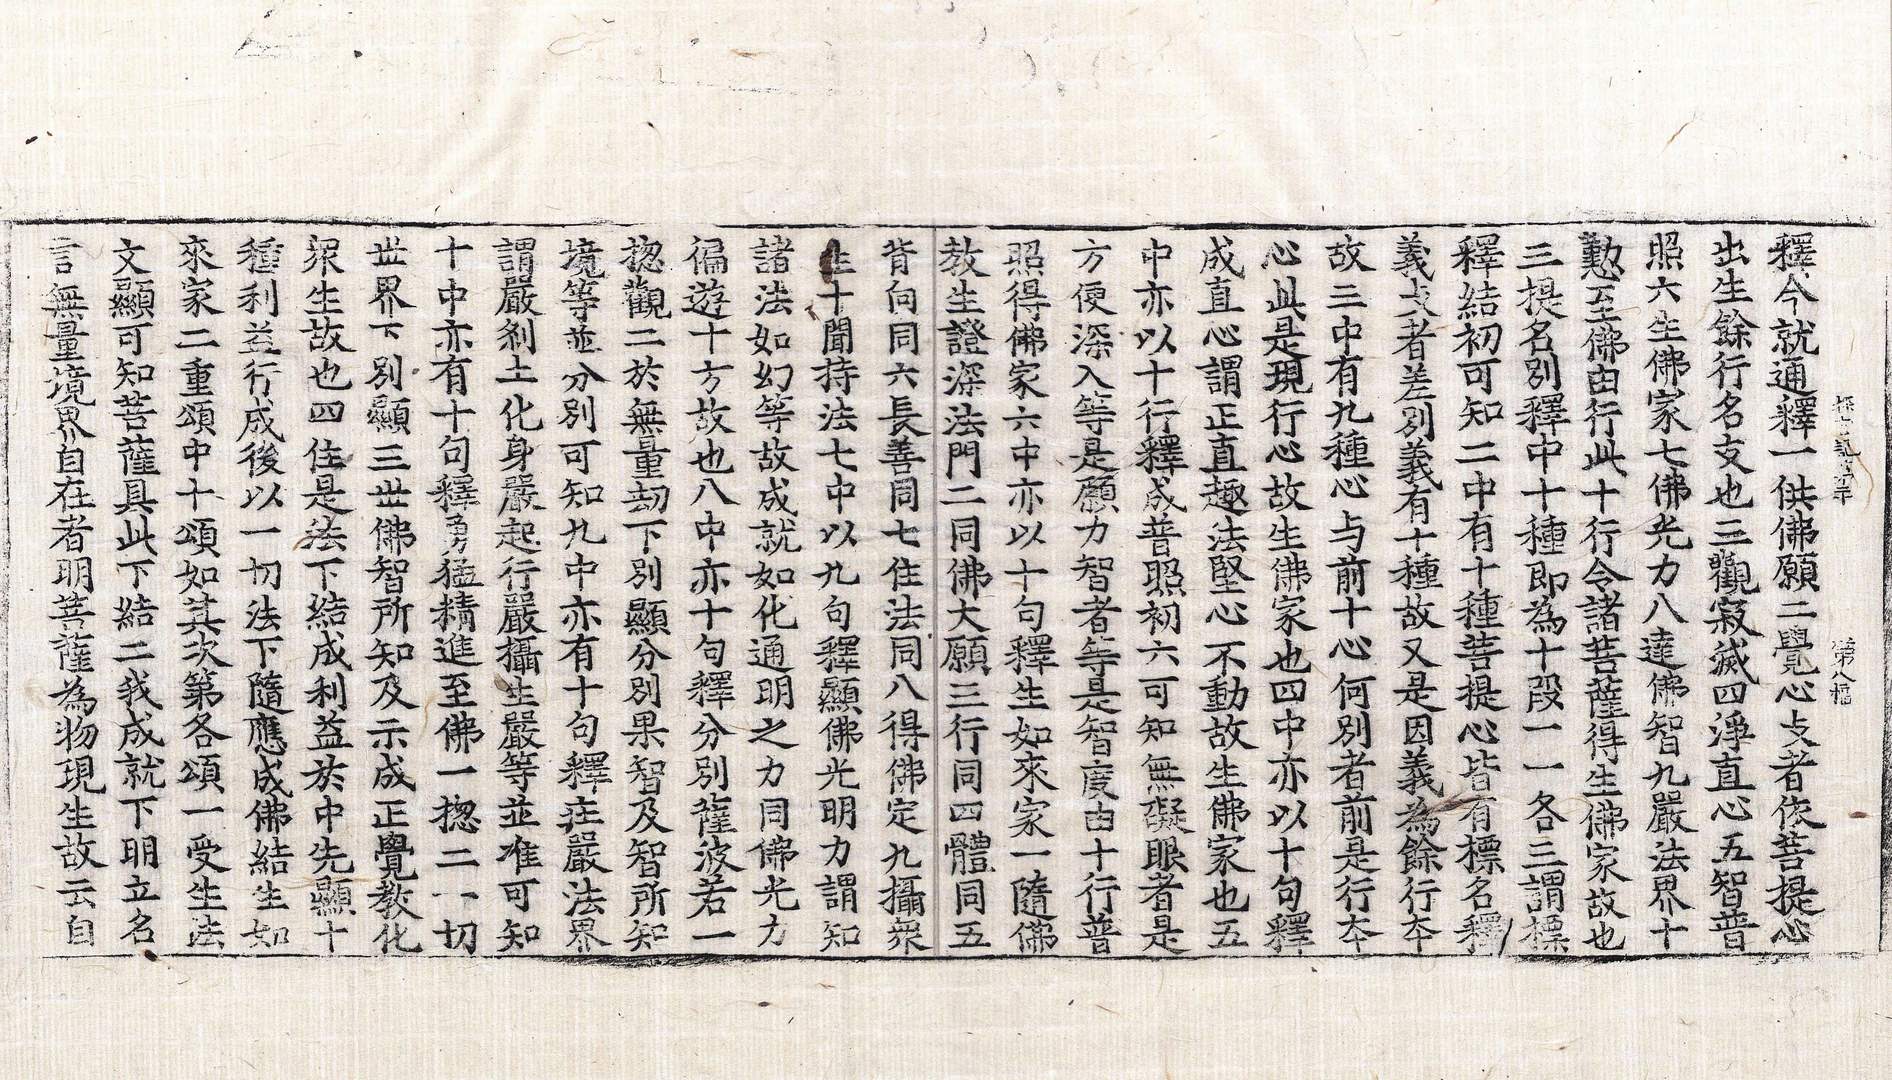 探玄記第二十　第八幅
釋今就通釋一供佛願二覺心支者依菩提心
出生餘行名支也三觀寂滅四淨直心五智普
照六生佛家七佛光力八達佛智九嚴法界十
懃至佛由行此十行令諸菩薩得生佛家故也
三提名別釋中十種即為十段一一各三謂標
釋結初可知二中有十種菩提心皆有標名釋
義支者差別義有十種故又是因義為餘行夲
故三中有九種心与前十心何別者前是行夲
心此是現行心故生佛家也四中亦以十句釋
成直心謂正直趣法堅心不動故生佛家也五
中亦以十行釋成普照初六可知無礙眼者是
方便深入等是願力智者等是智度由十行普
照得佛家六中亦以十句釋生如來家一隨佛
教生證深法門二同佛大願三行同四體同五
背向同六長善同七住法同八得佛定九攝衆
生十聞持法七中以九句釋顯佛光明力謂知
諸法如幻等故成就如化通明之力同佛光力
徧遊十方故也八中亦十句釋分別薩波若一
揔觀二於無量劫下別顯分別果智及智所知
境等並分別可知九中亦有十句釋庄嚴法界
謂嚴刹土化身嚴起行嚴攝生嚴等並准可知
十中亦有十句釋勇猛精進至佛一揔二一切
世界下別顯三世佛智所知及示成正覺教化
衆生故也四住是法下結成利益於中先顯十
種利益行成後以一切法下隨應成佛結生如
來家二重頌中十頌如其次第各頌一受生法
文顯可知菩薩具此下結二我成就下明立名
言無量境界自在者明菩薩為物現生故云自